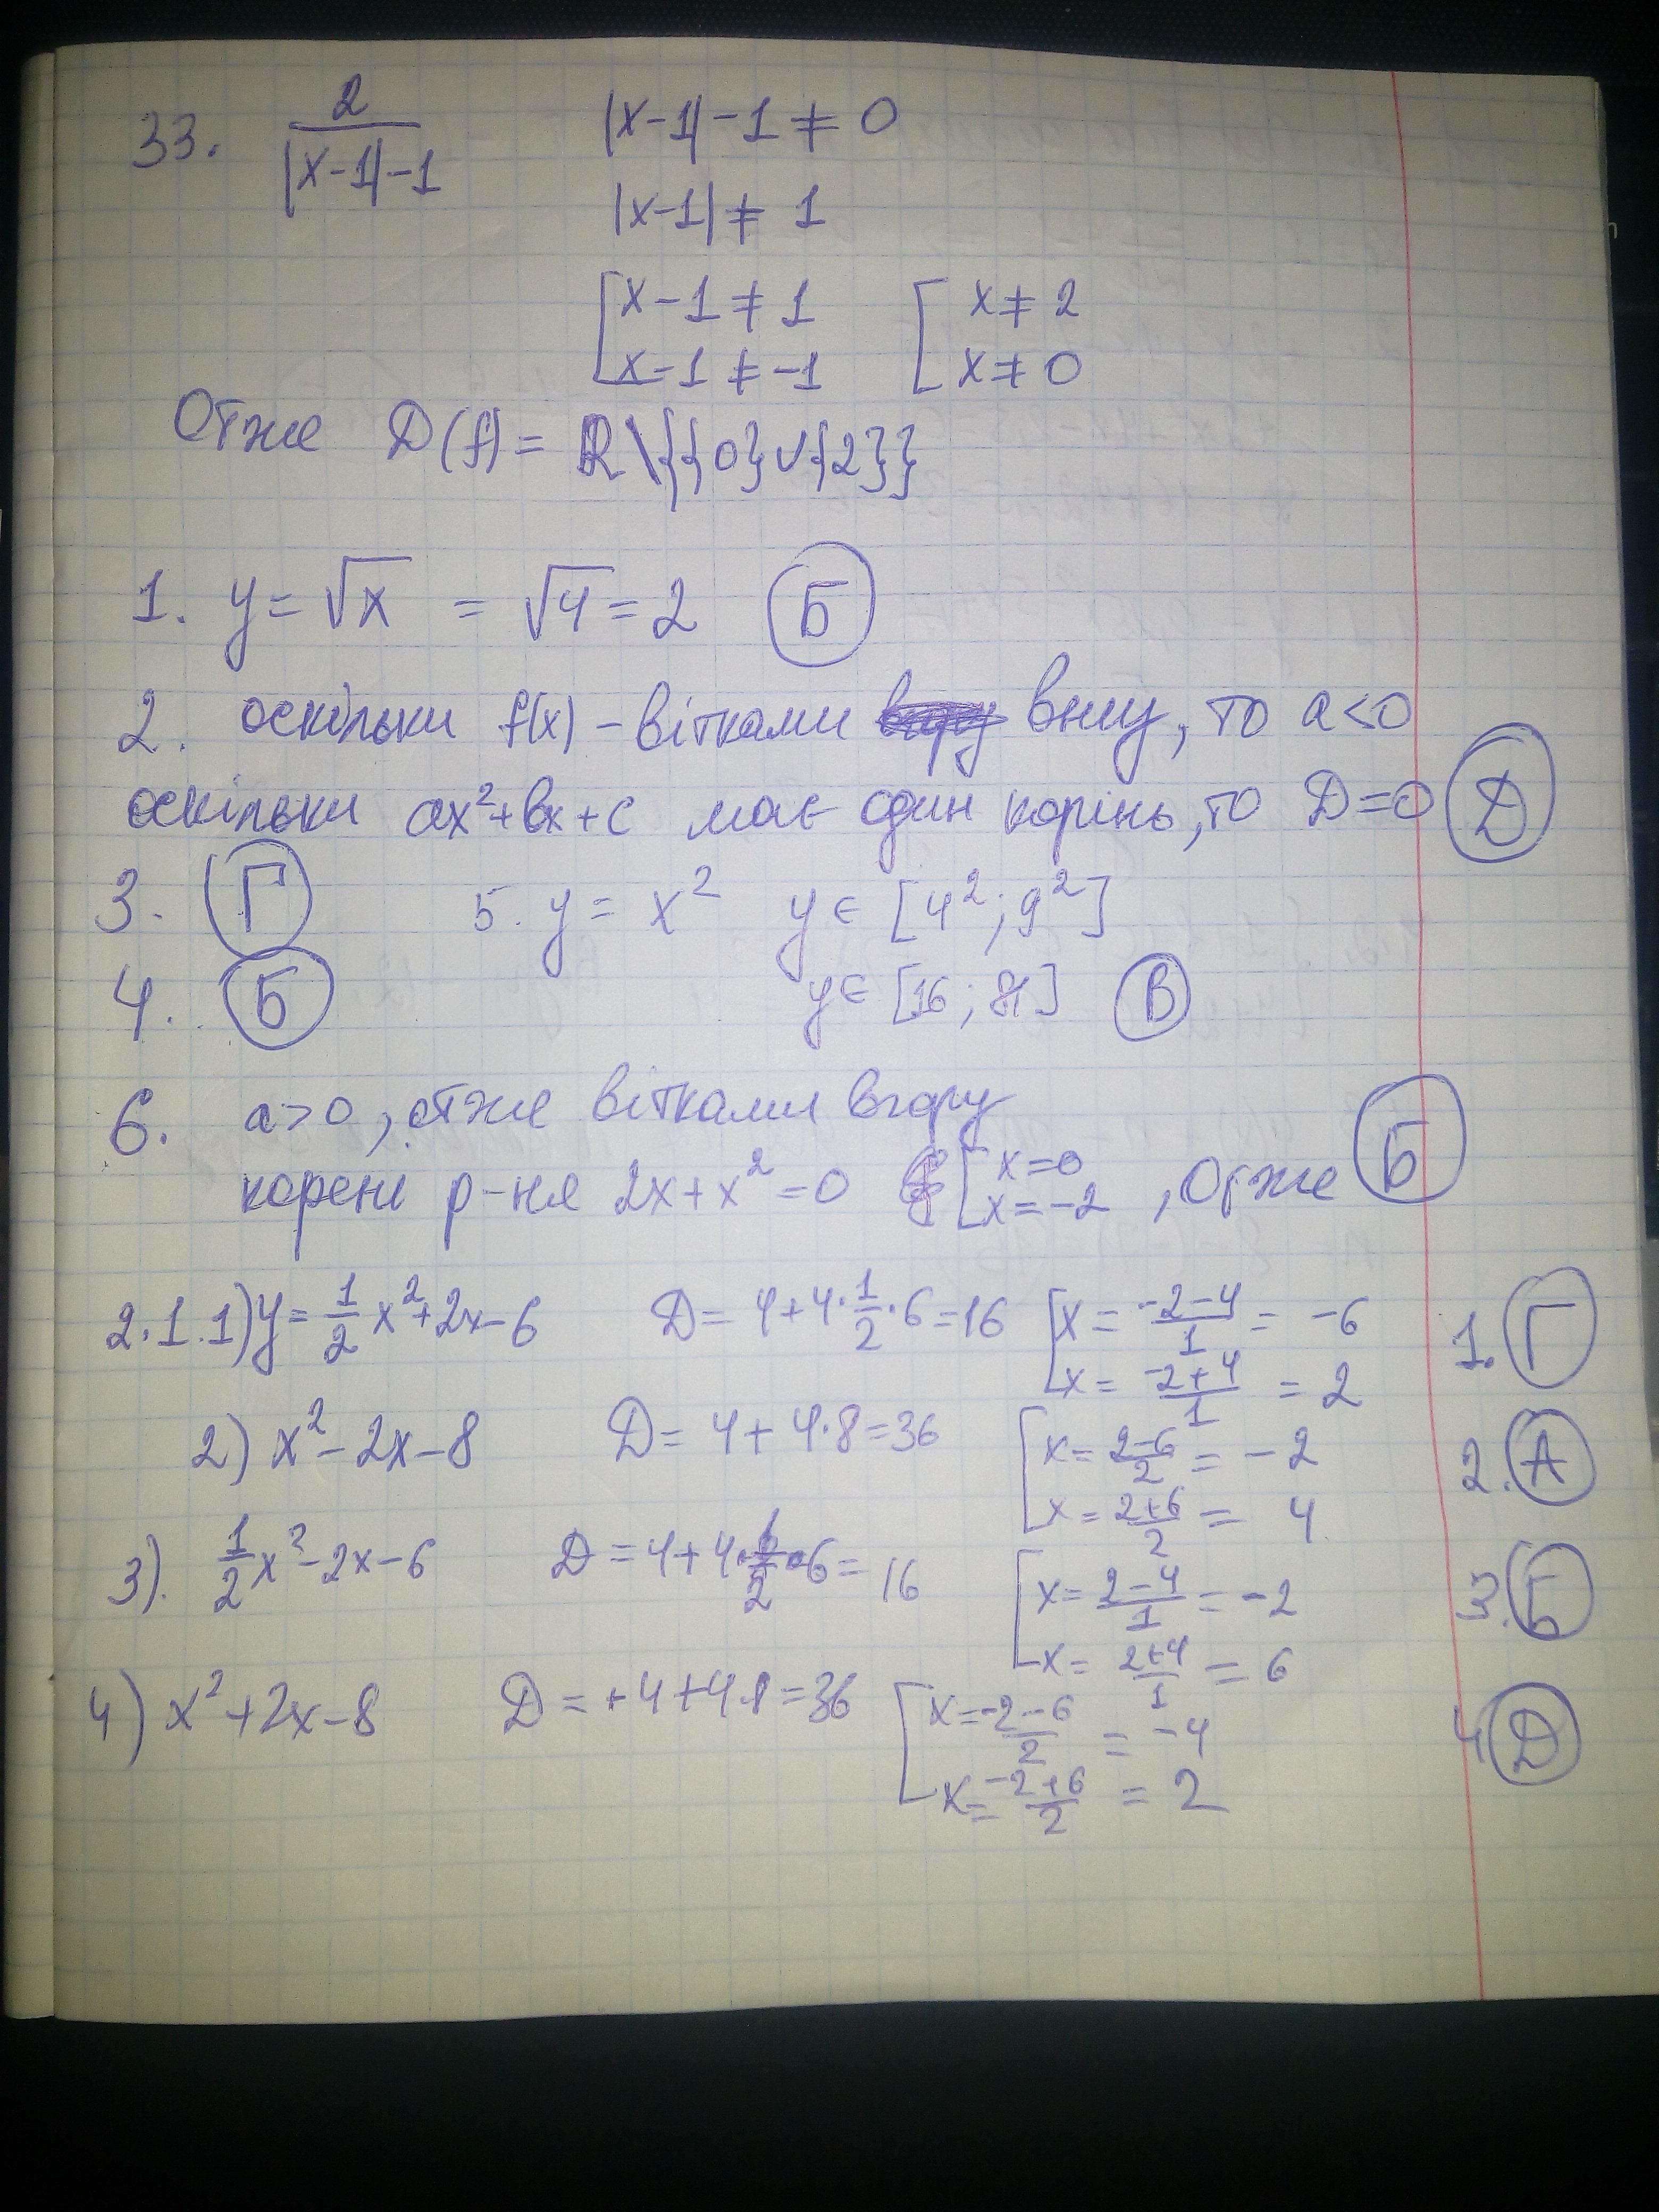 33. 2/(|x-1|-1) |x-1|-1 ≠ 0
|x-1| ≠ 1
[x-1 ≠ 1 [x ≠ 2
x-1 ≠ -1 x ≠ 0
Отже D(f) = R\{{0}∨{2}}
1. y = √x = √4 = 2 Б
2. оскільки f(x) - вітками вниз, то a<0
оскільки ax²+bx+c має один корінь, то D=0 Д
3. Г 5. y = x² y ∈ [4²; 9²]
4. Б y ∈ [16; 81] В
6. a>0, отже вітками вгору
корені р-ня 2x+x²=0 [x=0 x=-2, Отже Б
2.1.1) y = 1/2 x²+2x-6 D = 4+4·1/2·6=16 [x = (-2-4)/1 = -6 1. Г
x = (-2+4)/1 = 2
2) x²-2x-8 D = 4+4·8=36 [x = (2-6)/2 = -2 2. А
x = (2+6)/2 = 4
3). 1/2 x²-2x-6 D = 4+4·1/2·6= 16 [x = (2-4)/1 = -2 3. Б
x = (2+4)/1 = 6
4) x²+2x-8 D = +4+4·8=36 [x = (-2-6)/2 = -4 4 Д
x = (-2+6)/2 = 2